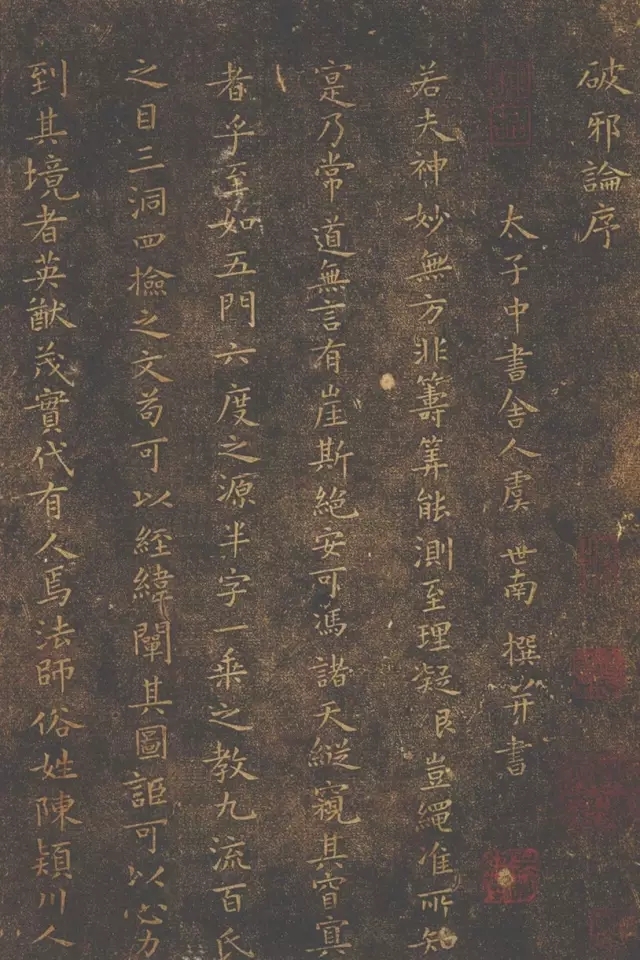 破邪論序
太子中書舍人虞世南撰并書
若夫神妙無方非籌筭能測至理凝艮豈繩准所知
寔乃常道無言有崖斯絶安可馮諸天縱窺其窅冥
者乎至如五門六度之源半字一乗之教九流百氏
之目三洞四撿之文苟可以経緯闡其圖詎可以心力
到其境者英猷茂實代有人焉法師俗姓陳潁川人